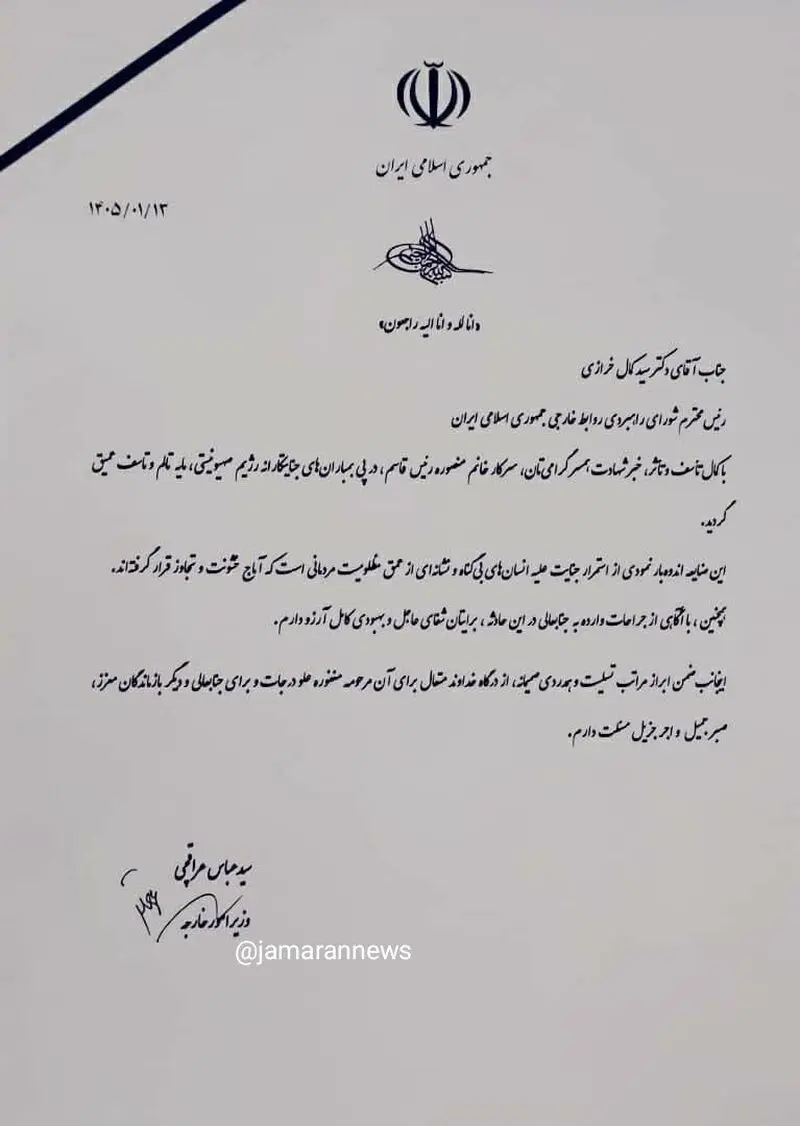 جمهوری اسلامی ایران
۱۴۰۵/۰۱/۱۳
«انا لله و انا الیه راجعون»
جناب آقای دکتر سید کمال خرازی
رئیس محترم شورای راهبردی روابط خارجی جمهوری اسلامی ایران
با کمال تأسف و تأثر، خبر شهادت همسر گرامی‌تان، سرکار خانم منصوره رئیس قاسم، در پی بمباران‌های جنایتکارانه رژیم صهیونیستی، مایه تالم و تاسف عمیق
گردید.
این ضایعه اندوه‌بار نمودی از استمرار جنایت علیه انسان‌های بی‌گناه و نشانه‌ای از عمق مظلومیت مردمانی است که آماج خشونت و تجاوز قرار گرفته‌اند.
همچنین، با آگاهی از جراحات وارده به جنابعالی در این حادثه، برایتان شفای عاجل و بهبودی کامل آرزو دارم.
اینجانب ضمن ابراز مراتب تسلیت و همدردی صمیمانه، از درگاه خداوند متعال برای آن مرحومه مغفوره علو درجات و برای جنابعالی و دیگر بازماندگان معزز،
صبر جمیل و اجر جزیل مسئلت دارم.
سید عباس عراقچی
وزیر امور خارجه
@jamarannews